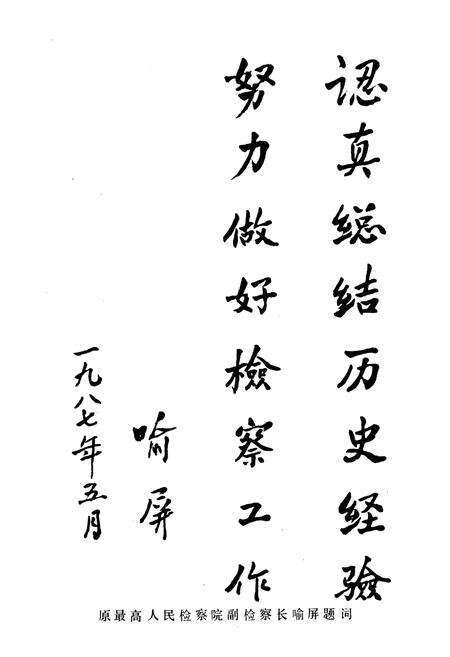 認真総结历史经驗
努力做好檢察工作
喻屏
一九八七年五月
原最高人民检察院副检察长喻屏题词